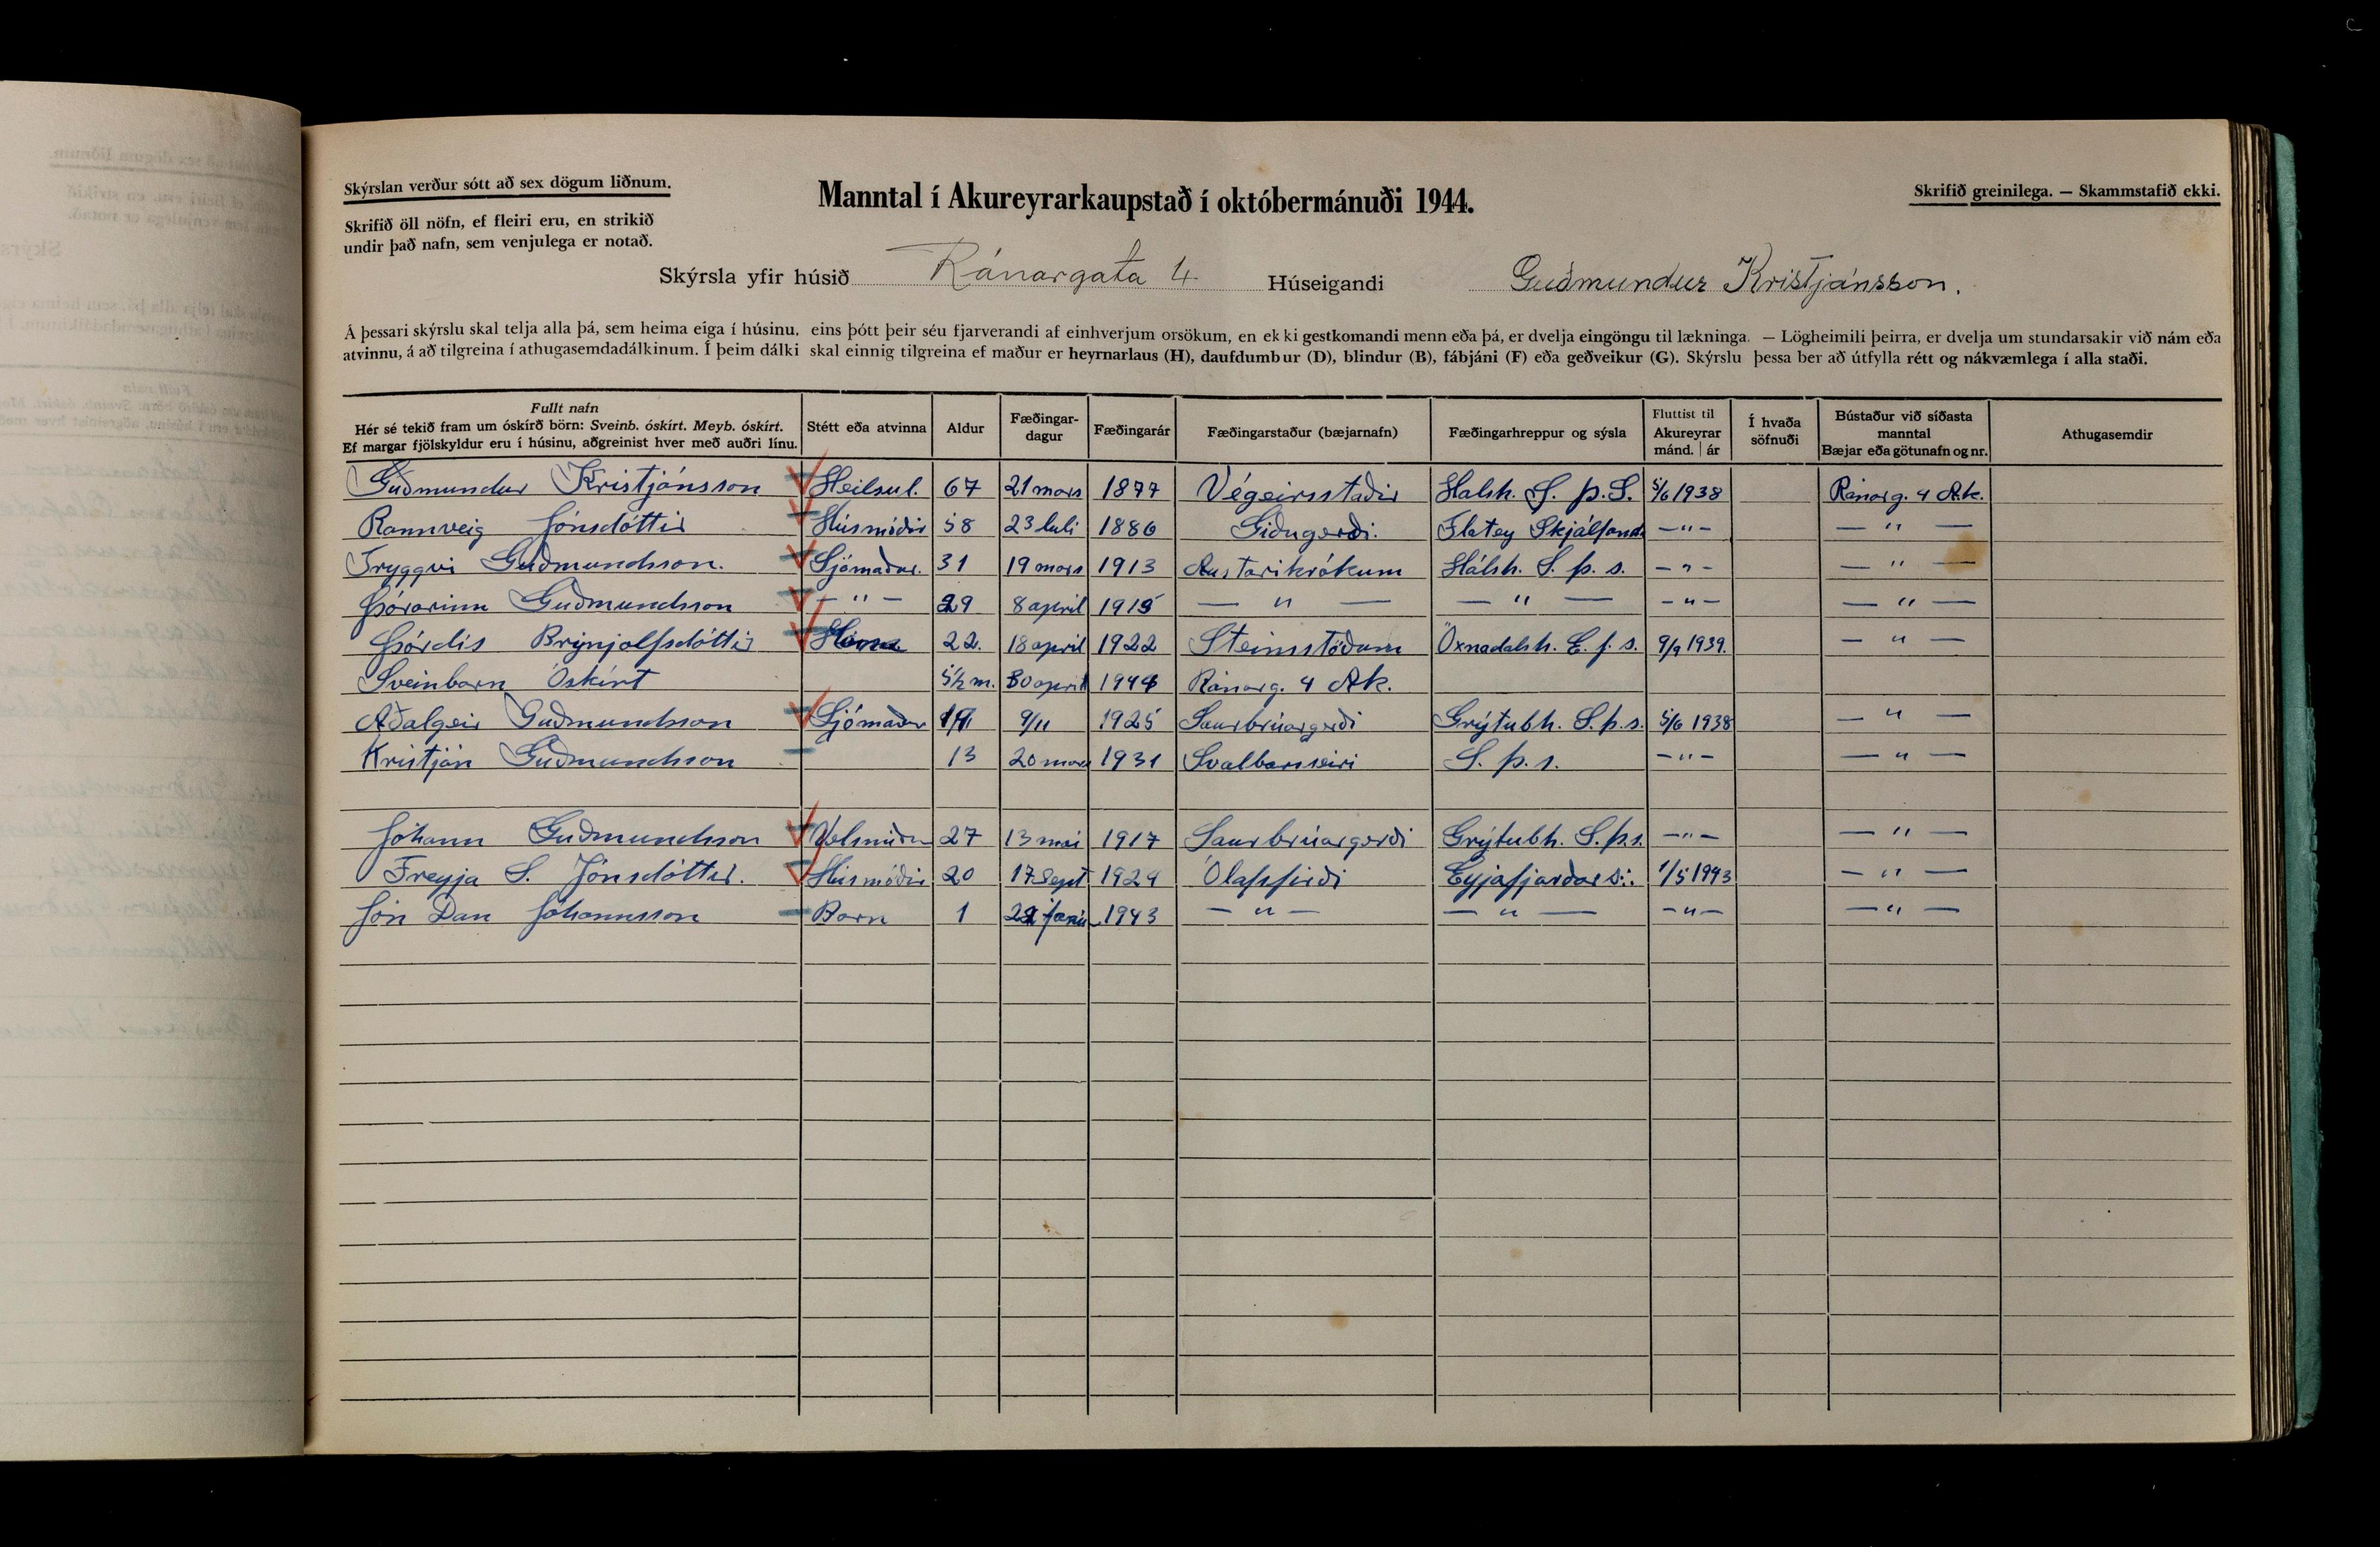 Skýrslan verður sótt að sex dögum liðnum.
Skrifið öll nöfn, ef fleiri eru, en strikið
undir það nafn, sem venjulega er notað.
Manntal í Akureyrarkaupstað í októbermánuði 1944.
Skrifið greinilega. — Skammstafið ekki.
Skýrsla yfir húsið Ránargata 4. Húseigandi Guðmundur Kristjánsson.
Á þessari skýrslu skal telja alla þá, sem heima eiga í húsinu, eins þótt þeir séu fjarverandi af einhverjum orsökum, en ekki gestkomandi menn eða þá, er dvelja eingöngu til lækninga. — Lögheimili þeirra, er dvelja um stundarsakir við nám eða
atvinnu, á að tilgreina í athugasemdadálkinum. Í þeim dálki skal einnig tilgreina ef maður er heyrnarlaus (H), daufdumbur (D), blindur (B), fábjáni (F) eða geðveikur (G). Skýrslu þessa ber að útfylla rétt og nákvæmlega í alla staði.
Fullt nafn
Hér sé tekið fram um óskírð börn: Sveinb. óskírt. Meyb. óskírt.
Ef margar fjölskyldur eru í húsinu, aðgreinist hver með auðri línu.
Stétt eða atvinna
Aldur
Fæðingar-
dagur
Fæðingarár
Fæðingarstaður (bæjarnafn)
Fæðingarhreppur og sýsla
Fluttist til
Akureyrar
mánd. | ár
Í hvaða
söfnuði
Bústaður við síðasta
manntal
Bæjar eða götunafn og nr.
Athugasemdir
Guðmundur Kristjánsson Heilsul. 67 21 mars 1877 Végeirsstaðir Halsh. S. Þ. S. 5/6 1938 Ránarg. 4 Ak.
Rannveig Jónsdóttir Húsmóðir 58 23 Juli 1886 Flatey Skjálfanda — " — — " —
Tryggvi Guðmundsson. Sjómaður. 31 19 mars 1913 Austarikrókum Hálsh. S. þ. s. — " — — " —
Þórarinn Guðmundsson — " — 29 8 april 1915 — " — — " — — " — — " —
Þórdís Brynjolfsdóttir 22. 18 april 1922 Steinstöðum Öxnadalsh. E. f. s. 9/9 1939. — " —
Sveinbarn Óskírt 5½ m. 30 april 1944 Ránarg. 4 Ak.
Aðalgeir Guðmundsson Sjómaður 9/11 1925 Saurbrúargerði Grýtubh. S. þ. s. 5/6 1938 — " —
Kristján Guðmundsson 13 20 mars 1931 Svalbarseiri S. þ. s. — " — — " —
Jóhann Guðmundsson 27 13 mai 1917 Saurbrúargerði Grýtubh. S. þ. s. — " — — " —
Freyja S. Jónsdóttir. Húsmóðir 20 17 Sept 1924 Ólafsfirði Eyjafjarðars. 1/5 1943 — " —
Jón Dan Jóhannsson Barn 1 1943 — " — — " — — " — — " —